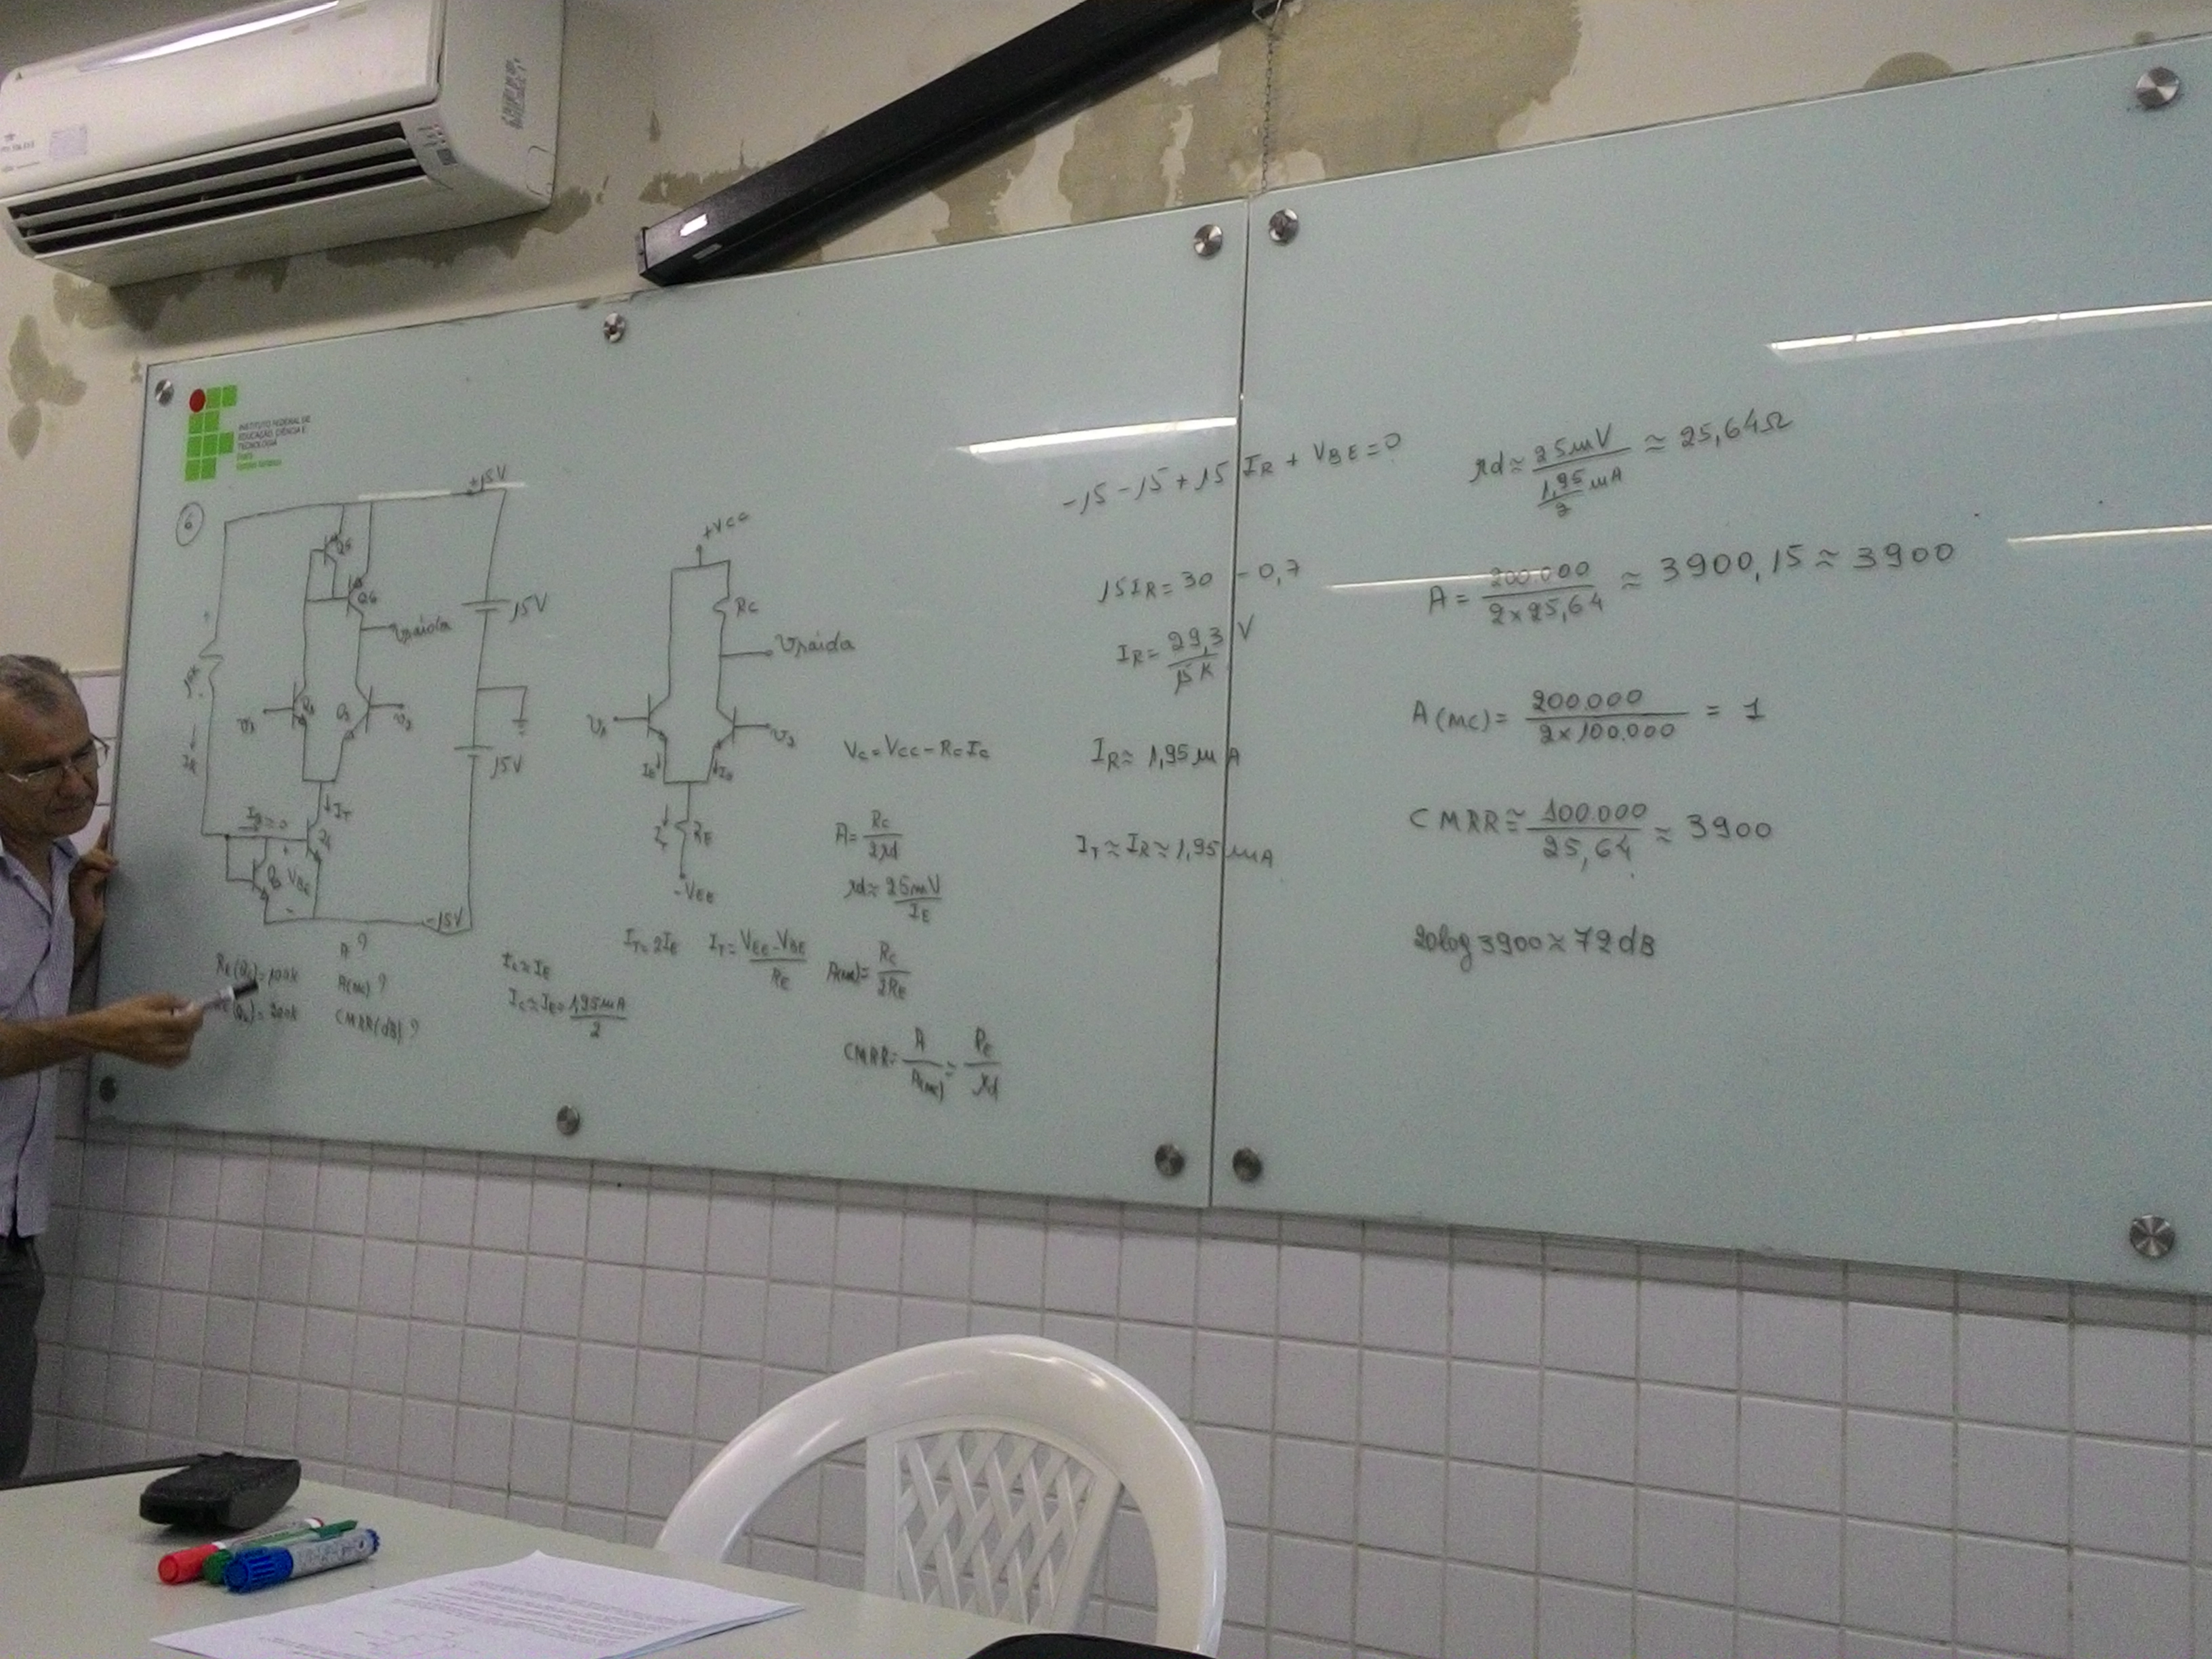 INSTITUTO FEDERAL DE
EDUCAÇÃO, CIÊNCIA E
TECNOLOGIA
6
+15V
Q5
Q6
vsaída
15V
15V
v1
v2
IR ↓
↓ IT
IB≈0
+
VBE
-
-15V
A ?
A(mc) ?
CMRR(dB) ?
IC≈IE
IC≈IE=1,95mA/2
+VCC
RC
vsaída
v1
v2
IE
IE
RE
-VEE
IT=2IE
IT=VEE-VBE/RE
VC=VCC-RCIC
A=RC/2rd
rd≈25mV/IE
A(mc)=RC/2RE
CMRR=A/A(mc)≈RE/rd
-15-15+15IR+VBE=0
15IR=30-0,7
IR=29,3V/15K
IR≈1,95mA
IT≈IR≈1,95mA
rd≈25mV/(1,95/2 mA)≈25,64Ω
A=200.000/2x25,64≈3900,15≈3900
A(mc)=200.000/2x100.000=1
CMRR≈100.000/25,64≈3900
20log3900≈72dB